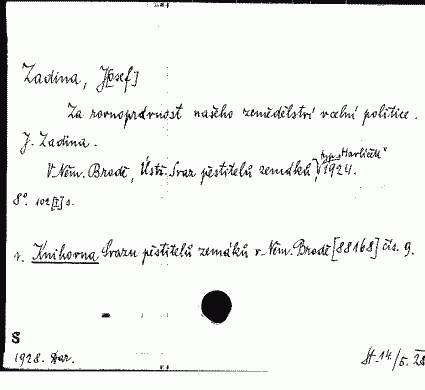 Zadina, J[osef]
Za rovnoprávnost našeho zemědělství v celní politice.
J. Zadina.
typ. „Havlíček“
V Něm. Brodě, Ústř. Svaz pěstitelů zemáků, 1924.
8°. 102 [I] s.
v. Knihovna Svazu pěstitelů zemáků v Něm. Brodě [88168] čís. 9.
S
1928. Dar.
St-14/5. 28